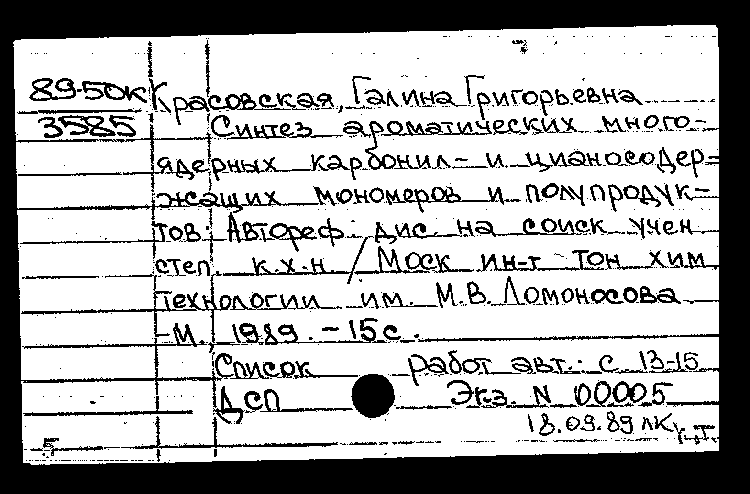 89-50к Красовская, Галина Григорьевна
3585 Синтез ароматических много-
ядерных карбонил- и цианосодер-
жащих мономеров и полупродук-
тов: Автореф. дис. на соиск учен
степ. к.х.н / Моск ин-т тон хим
технологии им. М.В. Ломоносова
-М., 1989. - 15 с.
Список работ авт.: с 13-15
ДСП Экз. N 00005
18.09.89 лк
5